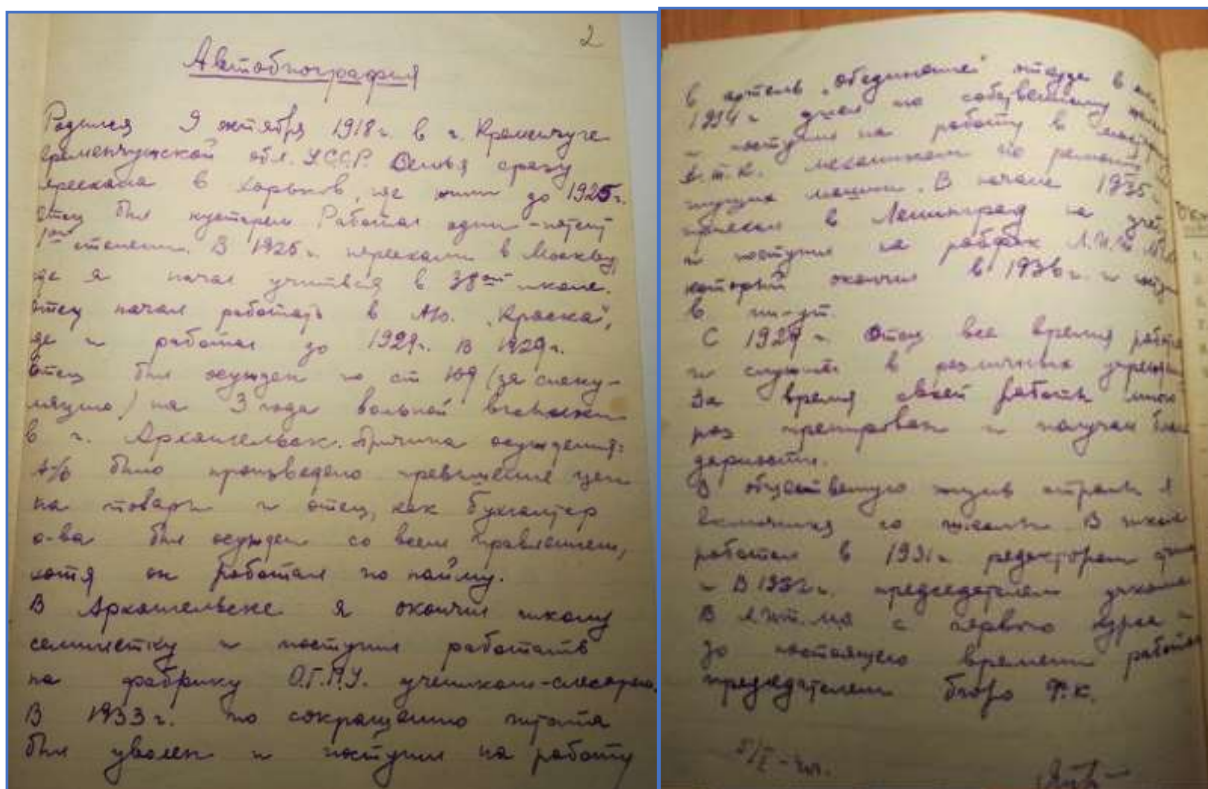 2
Автобиография
Родился 9 октября 1918 г. в г. Кременчуге
Кременчугской обл. УССР. Семья сразу
переехала в Харьков, где жили до 1925 г.
Отец был кустарем Работал один - патент
1ой степени. В 1925 г. переехали в Москву,
где я начал учиться в 38ой школе.
Отец начал работать в А/о. „Краска",
где и работал до 1929 г. В 1929 г.
Отец был осужден по ст 109 (за спеку-
ляцию) на 3 года вольной высылки
в г. Архангельск. Причина осуждения:
А/о было произведено превышение цен
на товары и отец, как бухгалтер
о-ва был осужден со всем правлением,
хотя он работал по найму.
В Архангельске я окончил школу
семилетку и поступил работать
на фабрику О.Г.П.У. учеником-слесарем.
В 1933 г. по сокращению штата
был уволен и поступил на работу
в артель „Объединение" откуда в
1934 г. ушел по собственному
и поступил на работу в
механиком по ремонту
пишущих машин. В начале 1935 г.
приехал в Ленинград на учебу
и поступил на рабфак
который окончил в 1936 г. и
в ин-ут.
С 1929 г. Отец все время работал
и служил в различных
За время своей работы много
раз премирован и получал благо
дарности.
В общественную жизнь страны я
включился со школы В школе
работал в 1931 г. редактором
и В 1932 г. председателем учкома
В с первого курса и
до настоящего времени работаю
председателем бюро Ф.К.